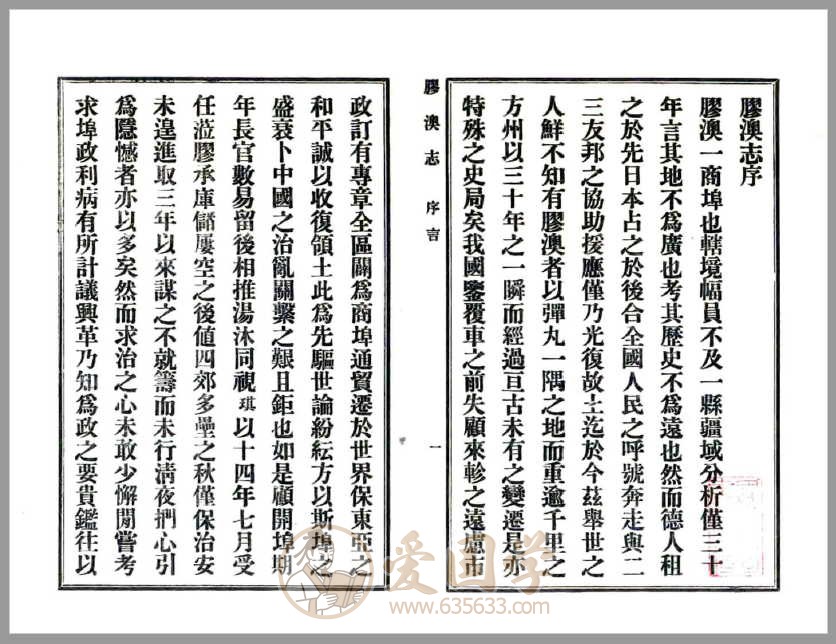 膠澳志序
膠澳一商埠也轄境幅員不及一縣疆域分析僅三十
年言其地不爲廣也考其歷史不爲遠也然而德人租
之於先日本占之於後合全國人民之呼號奔走與二
三友邦之協助援應僅乃光復故土迄於今茲舉世之
人鮮不知有膠澳者以彈丸一隅之地而重逾千里之
方州以三十年之一瞬而經過亘古未有之變遷是亦
特殊之史局矣我國鑒覆車之前失顧來軫之遠慮市
膠澳志 序言
一
政訂有專章全區闢爲商埠通貿遷於世界保東亞之
和平誠以收復領土此爲先驅世論紛紜方以斯埠之
盛衰卜中國之治亂關繫之艱且鉅也如是顧開埠期
年長官數易留後相推湯沐同視琪以十四年七月受
任蒞膠承庫儲屢空之後値四郊多壘之秋僅保治安
未遑進取三年以來謀之不就籌而未行淸夜捫心引
爲隱憾者亦以多矣然而求治之心未敢少懈閒嘗考
求埠政利病有所計議興革乃知爲政之要貴鑑往以
爱国学
www.635633.com